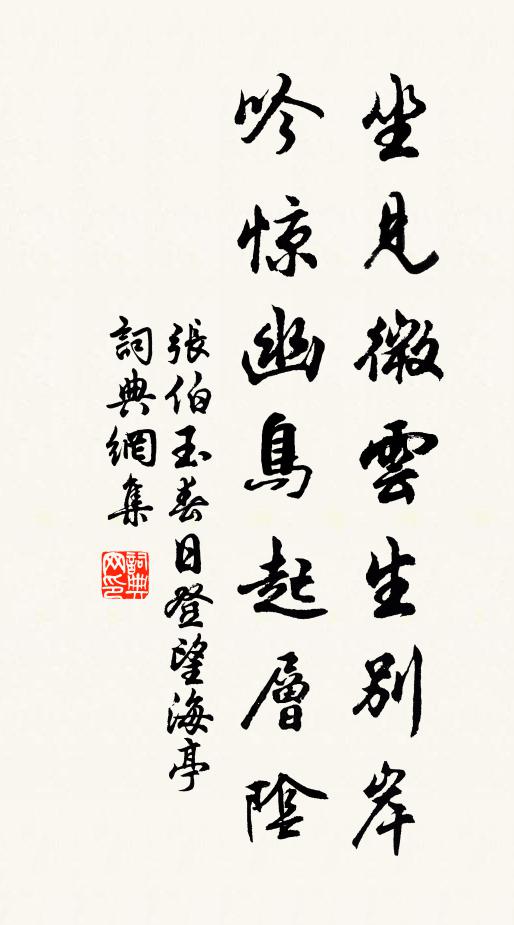 坐見微雲生別岸
吟惊幽鳥起層陰
張伯玉春日登望海亭
詞典網集
詞典
网印